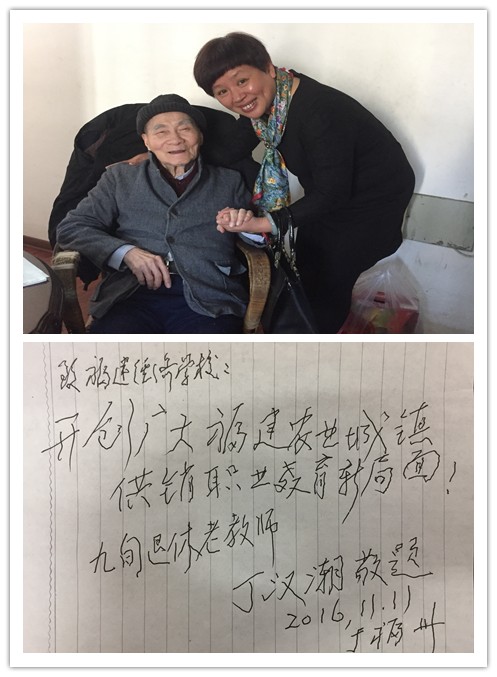 致福建经济学校：
开创广大福建农业城镇
供销职业教育新局面！
九旬退休老教师
丁汉潮敬题
2016.11.11
于福州